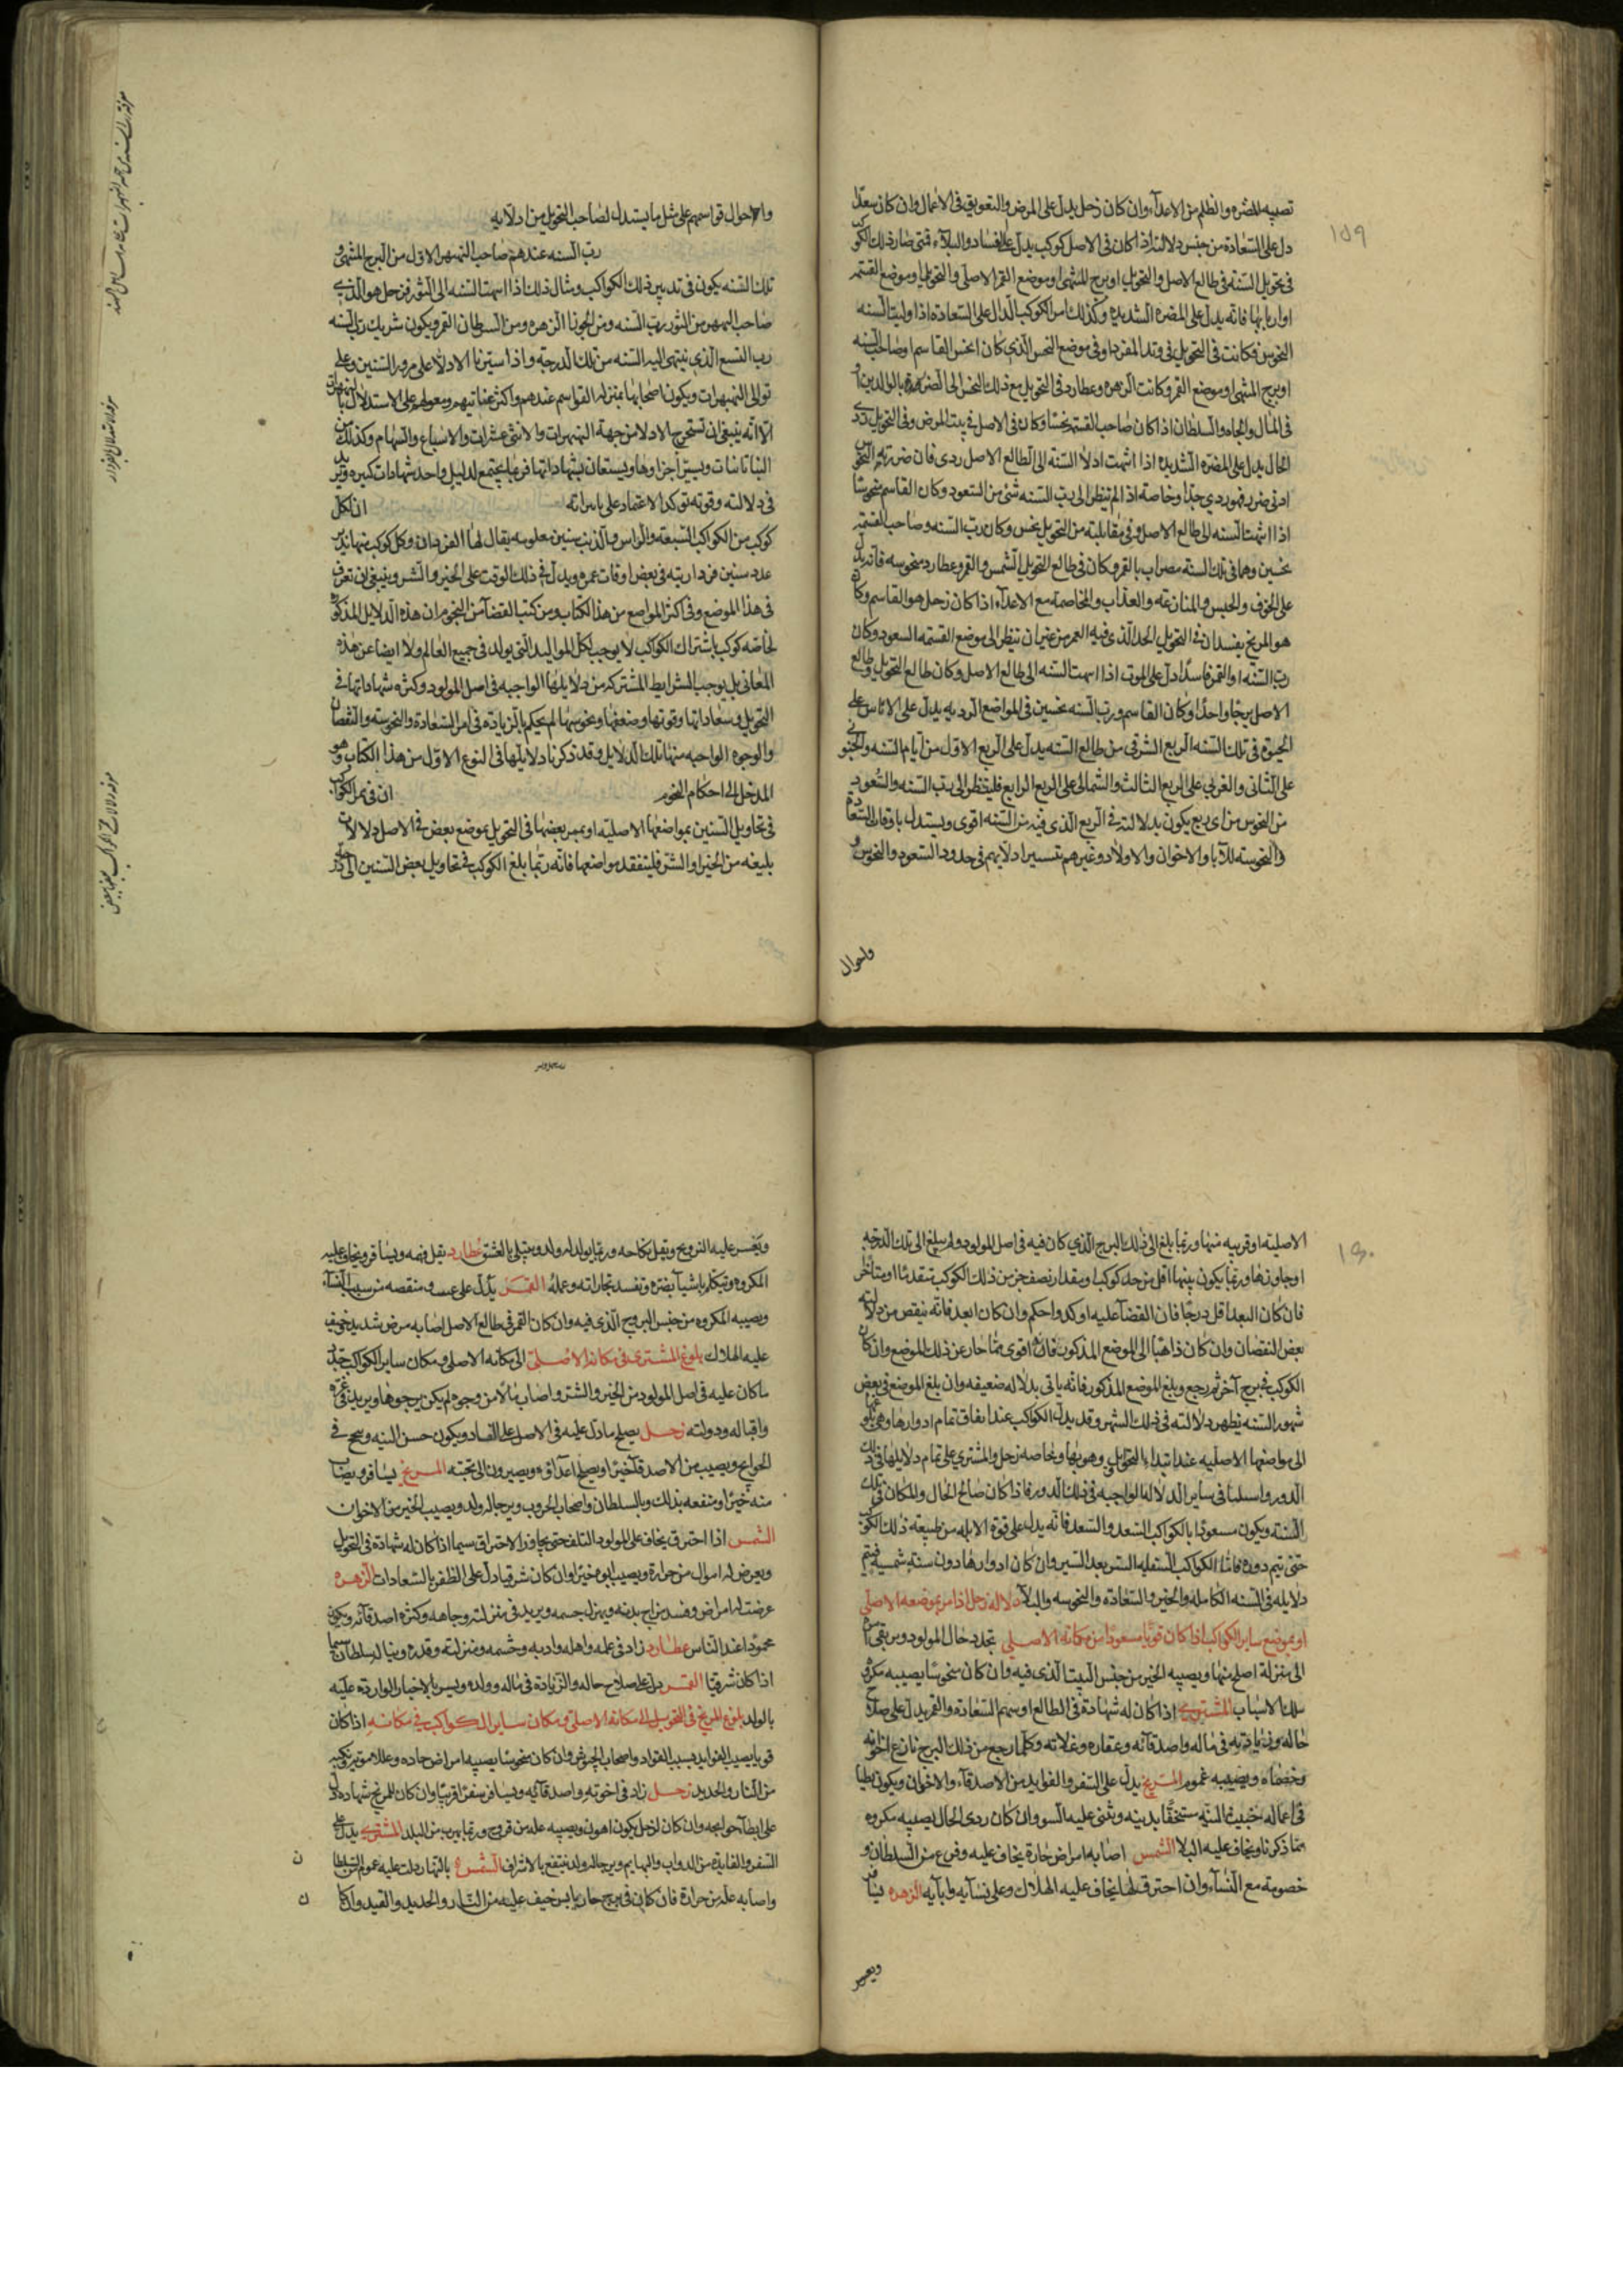 تصيبه المضره والظلم من الاعداء وان كان زحل يدل على المرض والتعويق فى الاعمال وان كان سعدا
دل على السعادة من جنس دلالته اذا كان فى الاصل كوكب يدل على الفساد والبلاء فمتى صار ذلك الكوكب
فى تحويل السنة فى طالع الاصل والتحويل او برج المنتهى او موضع القمر الاصلى والتحويلى او موضع القسمة
او اربابها فانه يدل على المضره الشديده وكذلك من الكوكب الدال على السعادة اذا وليت السنه
النحوس فكانت فى التحويل فى وتد المفردا وفى موضع النحس الذى كان انحس القاسم او صاحب السنه
او برج المنتهى او موضع القمر وكانت الزهره وعطارد فى التحويل مع ذلك النحس الحال المضر بالوالدين او
فى المال والجاه والسلطان اذا كان صاحب القسمة نحسا وكان فى الاصل فى بيت المرض وفى التحويل ردى
الحال يدل على المضره الشديده اذا انتهت ادلا السنة الى الطالع الاصل ردى فان ضربته النحوس
ادنى ضرر فهو ردى جدا وخاصة اذا لم تنظر الى رب السنه شئ من السعود وكان القاسم منحوسا
اذا انتهت السنه الى طالع الاصل وفى مقابلته من التحويل نحس وكان رب السنه وصاحب القسمة
نحسين وهما فى تلك السنه مضراب بالقمر وكان فى طالع التحويل الشمس والقمر وعطارد منحوسه فانه يدل
على الخوف والحبس والمنازعه والعذاب والمخاصمة مع الاعداء اذا كان زحل هو القاسم وكان
هو المريخ يفسدان فى التحويل الحد الذى فيه القمر من غير ان تنظر الى موضع القسمه السعود وكان
رب السنه او القمر فاسدا دل على الموت اذا انتهت السنه الى طالع الاصل وكان طالع التحويل وطالع
الاصل برجا واحدا وكان القاسم ورب السنه نحسين فى المواضع الرديه يدل على الاياس على
الحيوة فى تلك السنه الربع الشرقى من طالع السنه يدل على الربع الاول من ايام السنه والجنوبى
على الثانى والغربى على الربع الثالث والشمالى على الربع الرابع فلينظر الى رب السنه والسعود
من النحوس من اى ربع يكون بدلالته فى الربع الذى فيه من السنه اقوى ويستدل باوقات السعادة
والنحوسه للآبا والاخوان والاولاد وغيرهم تسيير ادلايهم فى حدود السعود والنحوس و
واحوال
١٥٩
واحوال قواسمهم على مثل ما يستدل لصاحب التحويل من ادلايه
رب السنه عندهم صاحب النهبهر الاول من البرج المنتهى و
تلك السنه يكون فى تدبير ذلك الكواكب ومثال ذلك اذا انتهت السنه الى الثور فزحل هو الذى
صاحب النهبهر من الثور رب السنه ومن الجوزا الزهره ومن السرطان القمر ويكون شريك رب السنه
رب التسع الذى ينتهى اليه السنه من تلك الدرجة واذا سيرنا الادلا على مرور السنين وعلى
توالى النهبهرات ويكون اصحابها بمنزله القواسم عندهم واكثر عنايتهم ومعولهم على الاستدلال بالنهبهرات
الا انه ينبغى ان تستخرج الادلا من جهة النهبهرات والاثنى عشرات والاسباع والسهام وكذلك
وسير اجزاوها ويستعان بشهاداتها فربما يجتمع لدليل واحد شهادات كثيره ويزيد
فى دلالته وقوته توكدا لاعتماد على ان لكل
كوكب من الكواكب السبعه والراس والذنب سنين معلومه يقال لها الفرداريات وكل كوكب منها يدبر
عدد سنين فرداريته فى بعض اوقات عمره ويدل فى ذلك الوقت على الخير والشر وينبغى ان تعرف
فى هذا الموضع وفى اكثر المواضع من هذا الكتاب ومن كتب القضا من النجوم ان هذه الدلايل المذكورة
لخاصه كوكب باشتراك الكواكب لا يوجب لكل المواليد التى يولد فى جميع العالم ولا ايضا عن هذه
المعانى بل يوجب الشرايط المشتركه من دلايلها الواجبه فى اصل المولود وكثره شهاداتها فى
التحويل فى سعاداتها وقوتها وضعفها ونحوسها ثم يحكم بالزيادة فى امر السعادة والنحوسه والنقصان
والوجوه الواجبه منها تلك الدلايل وقد ذكرنا دلايلها فى النوع الاول من هذا الكتاب وهو
المدخل الى احكام النجوم ان فى ممر الكواكب
فى تحاويل السنين بمواضعها الاصليه او بممر بعضها فى التحويل بموضع بعض فى الاصل دلالات
بليغه من الخير او الشر فليتفقد مواضعها فانه ربما بلغ الكوكب فى تحاويل بعض السنين الى درجته
الاصليه او قريبه منها وربما بلغ الى ذلك البرج الذى كان فيه فى اصل المولود ولم يبلغ الى تلك الدرجه
او جاوزها وربما يكون بينها اقل من حد كوكب او مقدار نصف جزء من ذلك الكوكب متقدما او متاخر
فان كان البعد اقل درجا فان القضا عليه اوكد واحكم وان كان ابعد فانه ينقص من دلالته
بعض النقصان وان كان ذاهبا الى الموضع المذكور فانه اقوى مما جاز عن ذلك الموضع وان كان
الكوكب فى برج آخر ثم رجع وبلغ الموضع المذكور فانه ياتى بدلاله ضعيفه وان بلغ الموضع فى بعض
شهور السنه يظهر دلالته فى ذلك الشهر وقد يدل الكواكب عند اتفاق تمام ادوارها وهى بلوغها
الى مواضعها الاصليه عند ابتداء التحاويل وهبوبها وبخاصه زحل والمشترى على تمام دلايلها فى ذلك
الدور واسلما فى ساير الدلاله الواجبه فى ذلك الدور فاذا كان صالح الحال والمكان فى تلك
السنه ويكون مسعودا بالكواكب السعد والسعد فانه يدل على قوة الابانه من طبيعة ذلك الكوكب
حتى يتم دوره فاما الكواكب السفليه السريعه السير وان كان ادوارها دون سنة شمسيه فيتم
دلايله فى السنه الكامله والخير والسعادة والنحوسه والبلاء دلاله زحل اذا مر بموضعه الاصلى
او بموضع ساير الكواكب اذا كان قويا مسعودا من مكانه الاصلى تجدد حال المولود ويرتقى امره
الى منزلة اصلح منها ويصيبه الخير من جنس البيت الذى فيه وان كان منحوسا يصيبه مكروه
من تلك الاسباب المشترى اذا كان له شهادة فى الطالع او سهم السعادة والقمر يدل على صلاح
حاله وزيادته فى ماله واصدقائه وعقاره وغلاته وكلما رجع من ذلك البرج نازع اخوته
وخصماه ويصيبه غموم المريخ يدل على السفر والفوايد من الاصدقاء والاخوان ويكون بطيا
فى اعماله خبيث النيه مستخفا بدينه ويثنى عليه السوء وان كان ردى الحال يصيبه مكروه
مما ذكرنا ويخاف عليه البلا الشمس اصابه امراض حارة يخاف عليه وفزع من السلطان و
خصومة مع النساء وان احترق لها يخاف عليه الهلاك وعلى نسايه وابايه الزهره يسافر
ويعسر
١٦٠
ويعسر عليه التزويج ويقل نكاحه وربما يولد له ولد ويبتلى بالعشق عطارد يقل فهمه ويسافر ويخاف عليه
المكروه ويتكلم باشيا يضره وتفسد تجاراته وعمله القمر يدل على ومنقصه من سبب النساء
ويصيبه المكروه من جنس البروج الذى فيه وان كان القمر فى طالع الاصل اصابه مرض شديد خيف
عليه الهلاك بلوغ المشترى فى مكانه الاصلى الى مكانه الاصلى ومكان ساير الكواكب يتجدد
ما كان عليه فى اصل المولود من الخير والشر واصاب مالا من وجوه لم يكن يرجوها ويزيد فى عزه
واقباله ودولته زحل يصلح ما دل عليه فى الاصل على الفساد ويكون حسن النيه وينجح فى
الحوايج ويصيب من الاصدقا خيرا ويصلح اعداؤه ويصيرون الى محبته المريخ يسافر ويصاب
منه خيرا ومنفعه بذلك وبالسلطان واصحاب الحروب ويرجا له ولد ويصيب الخير من الاخوان
الشمس اذا احترق يخاف على المولود التلف حتى يجاوز الاحتراق سيما اذا كان له شهادة فى التحويل
ويعرض له احوال من حرارة ويصيب ابوه خيرا وان كان شرقيا دل على الظفر بالسعادات الزهره
عرضت له امراض وفسد مزاج بدنه ويهزل جسمه ويزيد فى منزلته وجاهه وكثره اصدقائه ويكون
محمودا عند الناس عطارد زاد فى علمه واهله وادبه وحشمه ومنزلته وقدره وينال سلطانا سيما
اذا كان شرقيا القمر دل على صلاح حاله والزيادة فى ماله وولده ويسر بالاخبار الوارده عليه
بالولد بلوغ المريخ فى التحويل الى مكانه الاصلى ومكان ساير الكواكب فى مكانه اذا كان
قويا يصيب الفوايد بسبب القواد واصحاب الجيوش وان كان منحوسا يصيبه امراض حاده وعلل موتيه ونكبه
من النار والحديد زحل زاد فى اخوته واصدقائه ويسافر سفرا قريبا وان كان للمريخ شهاده دل
على ابطا حوايجه وان كان لزحل يكون اهون ويصيبه عله من قروح وربما يهرب من البلد المشترى يدل على
السفر والفايدة من الدواب والبهايم ويرجا له ولد ينتفع بالاشراف الشمس بالنهار دلت عليه غموم السلطان
واصابه عله من حرارة فان كان فى برج حار يابس خيف عليه من النار والحديد والقيد وان كان